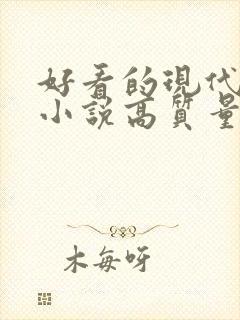 好看的現代
小説高質量
木每呀